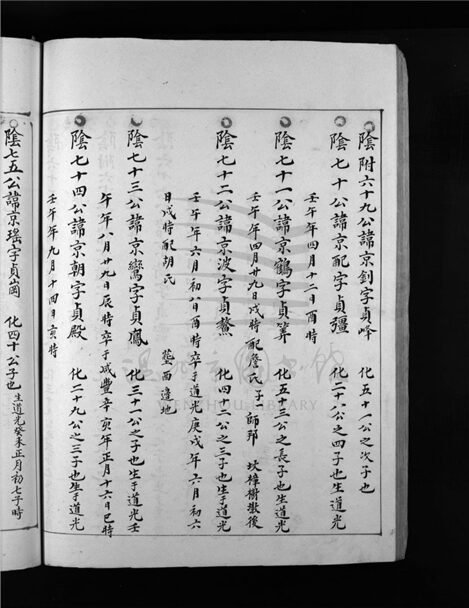 陰附六十九公諱京釗字貞峰 化五十一公之次子也
陰七十公諱京配字貞疆 化二十八公之四子也生道光
壬午年四月十二日酉時
陰七十一公諱京鶴字貞算 化五十三公之長子也生道光
壬午年四月廿九日戌時配詹氏子師邦 坟樟樹墩後
陰七十二公諱京波字貞鰲 化四十二公之三子也生于道光
壬午年六月初八日酉時卒于道光庚戌年六月初六
日戌時配胡氏 塟西邊地
陰七十三公諱京鸞字貞鳳 化三十一公之子也生于道光壬
午年八月廿九日辰時卒于咸豐辛亥年正月十六日巳時
陰七十四公諱京朝字貞殿 化二十九公之三子也生于道光
壬午年九月十四日亥時
陰七五公諱京瑤字貞崗 化四十公子也生道光癸未正月初七子時